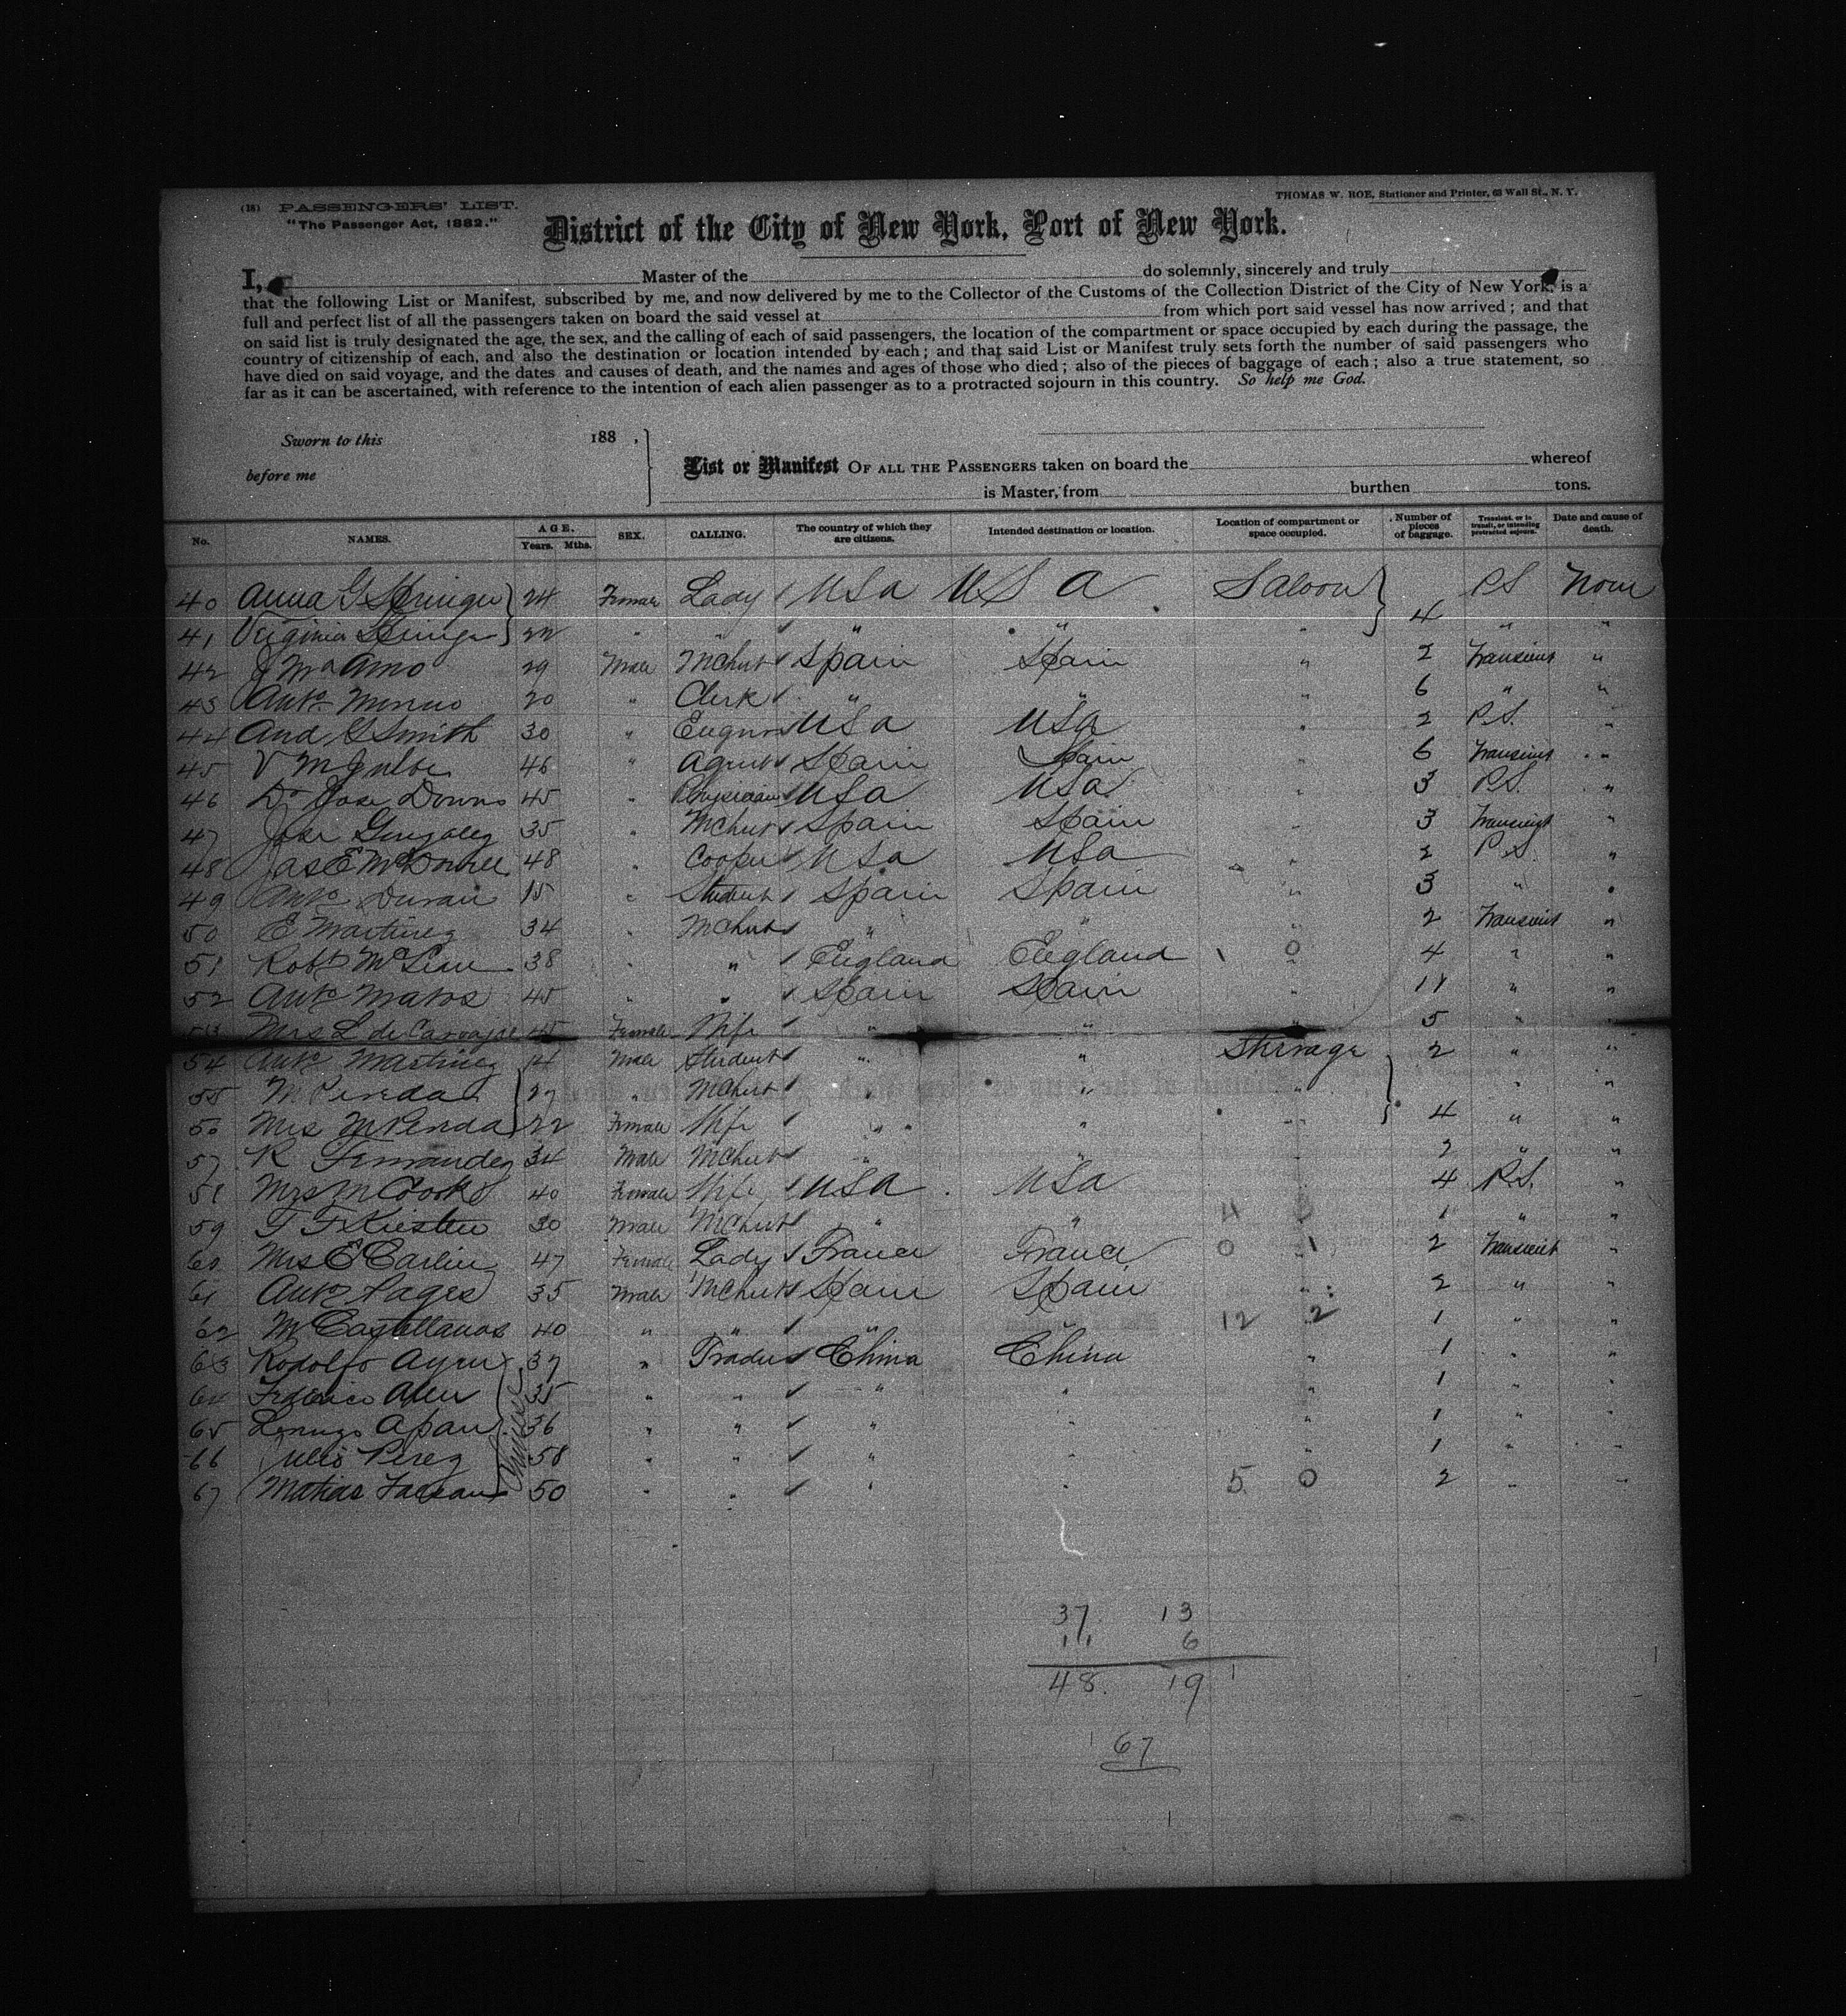 (18) PASSENGERS' LIST.
THOMAS W. ROE, Stationer and Printer, 63 Wall St., N. Y.
"The Passenger Act, 1882."
District of the City of New York, Port of New York.
I, Master of the do solemnly, sincerely and truly
that the following List or Manifest, subscribed by me, and now delivered by me to the Collector of the Customs of the Collection District of the City of New York, is a
full and perfect list of all the passengers taken on board the said vessel at from which port said vessel has now arrived; and that
on said list is truly designated the age, the sex, and the calling of each of said passengers, the location of the compartment or space occupied by each during the passage, the
country of citizenship of each, and also the destination or location intended by each; and that said List or Manifest truly sets forth the number of said passengers who
have died on said voyage, and the dates and causes of death, and the names and ages of those who died; also of the pieces of baggage of each; also a true statement, so
far as it can be ascertained, with reference to the intention of each alien passenger as to a protracted sojourn in this country. So help me God.
Sworn to this 188 .
before me
List or Manifest OF ALL THE PASSENGERS taken on board the whereof
is Master, from burthen tons.
No. NAMES. AGE. Years. Mths. SEX. CALLING. The country of which they are citizens. Intended destination or location. Location of compartment or space occupied. Number of pieces of baggage. Transient, or in transit, or intending protracted sojourn. Date and cause of death.
40 Anna G Springer 24 Female Lady USA USA Saloon PS None
41 Virginia Springer 22 " " " " " 4 " "
42 J Ma Amo 29 Male Mchnt Spain Spain " 2 Transient "
43 Anto 20 " Clerk " " " 6 " "
44 And G Smith 30 " USA USA " 2 P.S. "
45 V M 46 " Agent Spain Spain " 6 Transient "
46 Dr Jose Downs 45 " Physician USA USA " 3 P.S. "
47 Jose Gonzalez 35 " Mchnt Spain Spain " 3 Transient "
48 Jas E 48 " Cooper USA USA " 2 P.S. "
49 Anto Duran 15 " Student Spain Spain " 3 " "
50 E Martinez 34 " Mchnt " " " 2 Transient "
51 Robt McLean 38 " " England England 1 0 4 " "
52 Anto Matos 45 " " Spain Spain " 11 " "
53 Mrs L de Carvajal 45 Female Wife " " " 5 " "
54 Anto Martinez 14 Male Student " " Steerage 2 " "
55 M Pereda 27 " Mchnt " " " " "
56 Mrs M Pereda 22 Female Wife " " " 4 " "
57 R Fernandez 34 Male Mchnt " " 2 " "
58 Mrs M Cook 40 Female Wife USA USA 4 P.S. "
59 30 Male Mchnt " " 11 1 " "
60 Mrs E Carlin 47 Female Lady France France 0 1 2 Transient "
61 Anto Pages 35 Male Mchnt Spain Spain " 2 " "
62 M Castellanos 40 " " " " 12 2 1 " "
63 Rodolfo 37 " Trader China China " 1 " "
64 Federico 35 " " " " " 1 " "
65 Apan 36 " " " " " 1 " "
66 Julio Perez 58 " " " " " 1 " "
67 Matias 50 " " " " 5 0 2 " "
Chinese
37 13
11 6
48 19
67